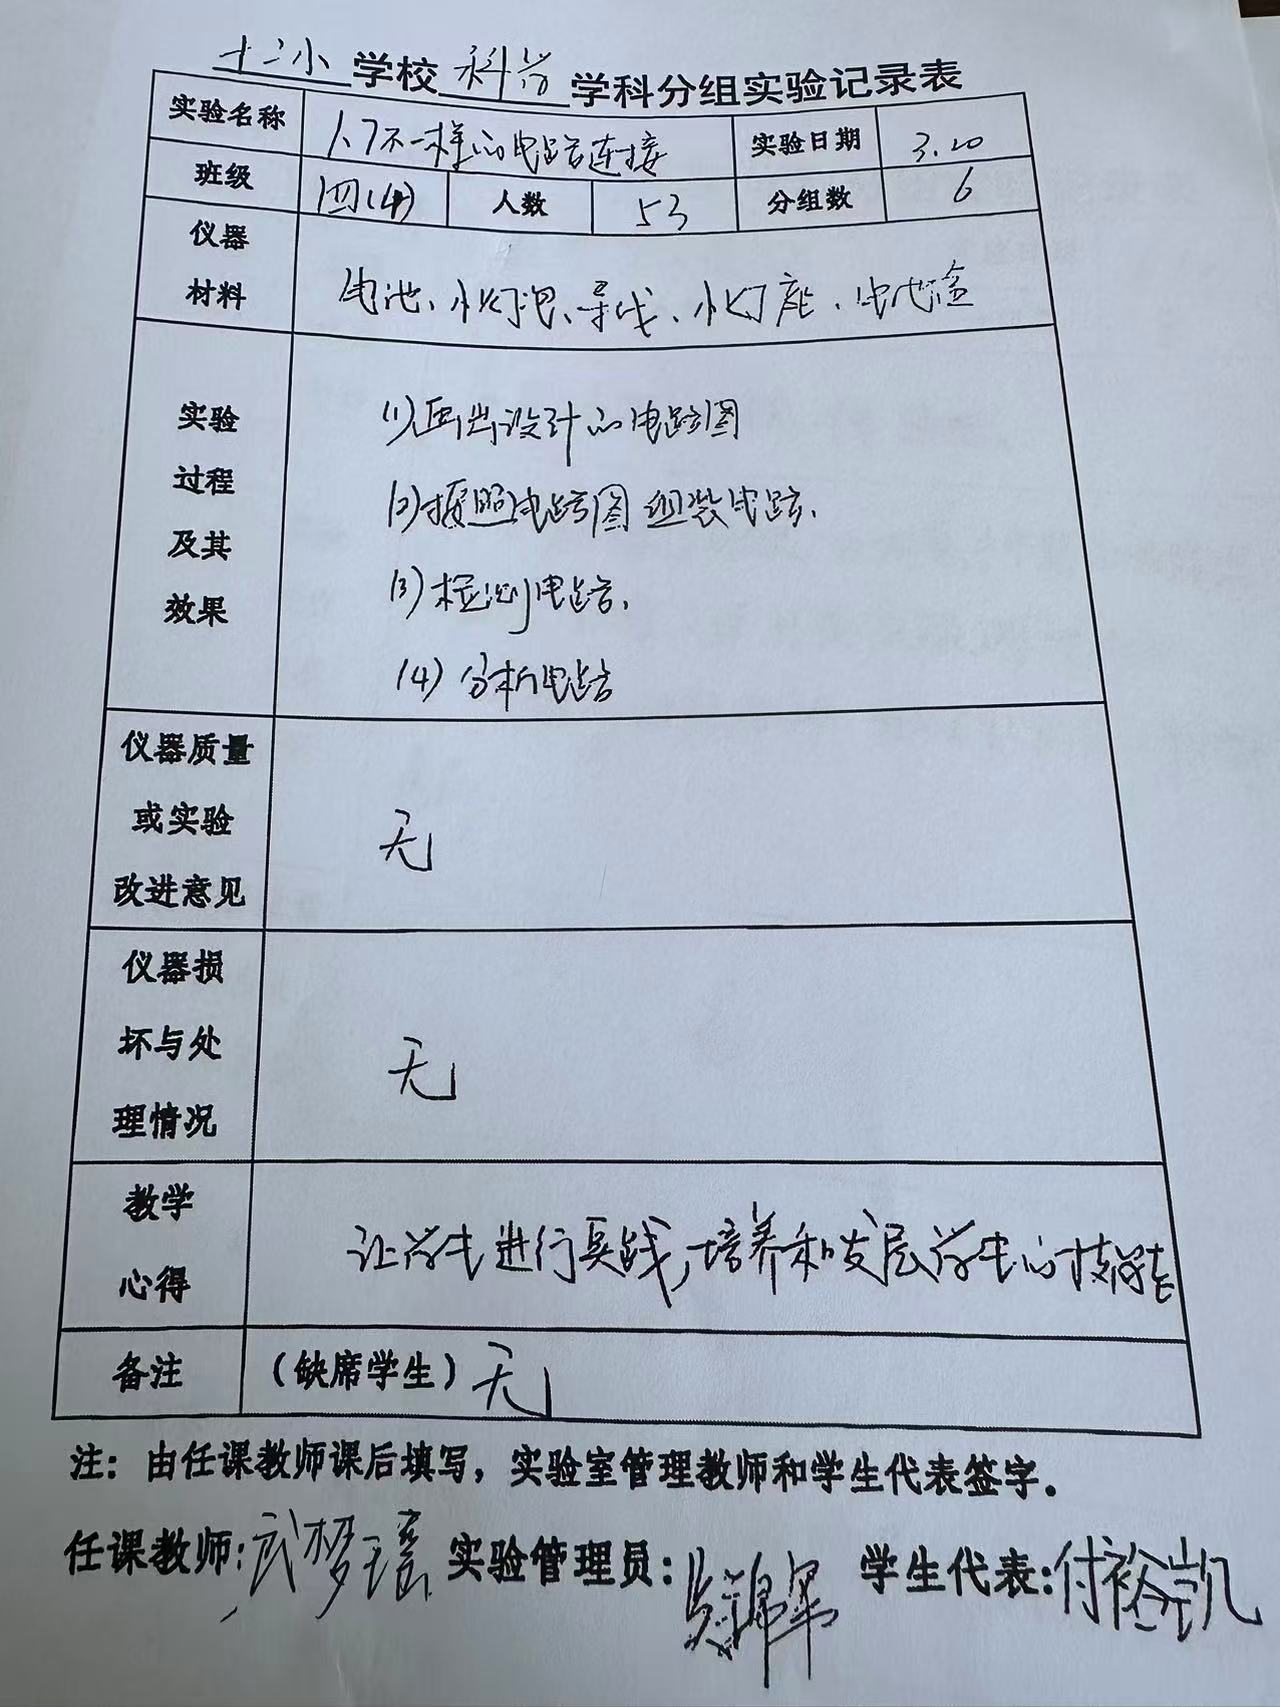 十二小学校科学学科分组实验记录表
实验名称 1、7不一样的电路连接 实验日期 3.20
班级 四(4) 人数 53 分组数 6
仪器
材料
电池、小灯泡、导线、小灯座、电池盒
实验
过程
及其
效果
(1)画出设计的电路图
(2)按照电路图组装电路.
(3)检测电路.
(4)分析电路
仪器质量
或实验
改进意见
无
仪器损
坏与处
理情况
无
教学
心得
让学生进行实践,培养和发展学生的技能
备注 (缺席学生)无
注:由任课教师课后填写,实验室管理教师和学生代表签字。
任课教师:武梦瑶 实验管理员: 学生代表:付裕凯